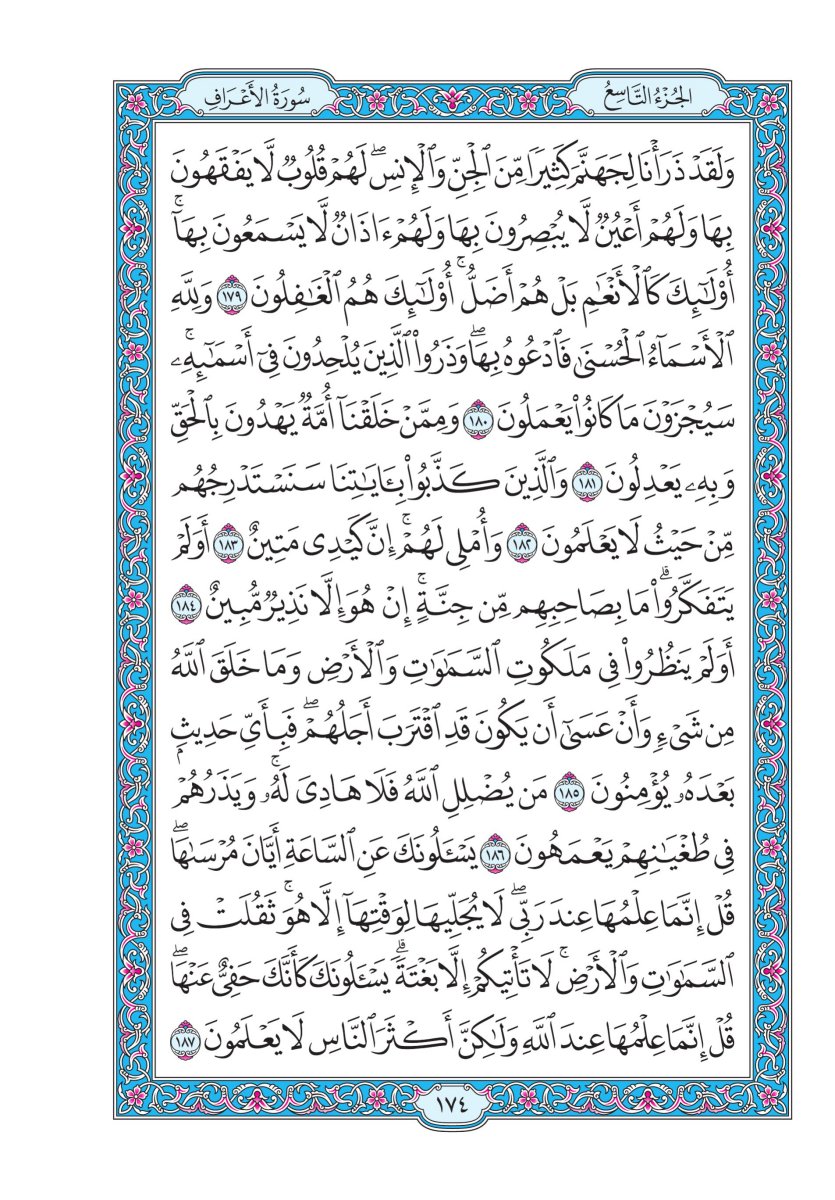 الجُزْءُ التَّاسِعُ
سُورَةُ الأَعْرَافِ
وَلَقَدْ ذَرَأْنَا لِجَهَنَّمَ كَثِيرًا مِّنَ ٱلْجِنِّ وَٱلْإِنسِ ۖ لَهُمْ قُلُوبٌ لَّا يَفْقَهُونَ
بِهَا وَلَهُمْ أَعْيُنٌ لَّا يُبْصِرُونَ بِهَا وَلَهُمْ ءَاذَانٌ لَّا يَسْمَعُونَ بِهَآ ۚ
أُو۟لَـٰٓئِكَ كَٱلْأَنْعَـٰمِ بَلْ هُمْ أَضَلُّ ۚ أُو۟لَـٰٓئِكَ هُمُ ٱلْغَـٰفِلُونَ ١٧٩ وَلِلَّهِ
ٱلْأَسْمَآءُ ٱلْحُسْنَىٰ فَٱدْعُوهُ بِهَا ۖ وَذَرُوا۟ ٱلَّذِينَ يُلْحِدُونَ فِىٓ أَسْمَـٰٓئِهِۦ ۚ
سَيُجْزَوْنَ مَا كَانُوا۟ يَعْمَلُونَ ١٨٠ وَمِمَّنْ خَلَقْنَآ أُمَّةٌ يَهْدُونَ بِٱلْحَقِّ
وَبِهِۦ يَعْدِلُونَ ١٨١ وَٱلَّذِينَ كَذَّبُوا۟ بِـَٔايَـٰتِنَا سَنَسْتَدْرِجُهُم
مِّنْ حَيْثُ لَا يَعْلَمُونَ ١٨٢ وَأُمْلِى لَهُمْ ۚ إِنَّ كَيْدِى مَتِينٌ ١٨٣ أَوَلَمْ
يَتَفَكَّرُوا۟ ۗ مَا بِصَاحِبِهِم مِّن جِنَّةٍ ۚ إِنْ هُوَ إِلَّا نَذِيرٌ مُّبِينٌ ١٨٤
أَوَلَمْ يَنظُرُوا۟ فِى مَلَكُوتِ ٱلسَّمَـٰوَٰتِ وَٱلْأَرْضِ وَمَا خَلَقَ ٱللَّهُ
مِن شَىْءٍ وَأَنْ عَسَىٰٓ أَن يَكُونَ قَدِ ٱقْتَرَبَ أَجَلُهُمْ ۖ فَبِأَىِّ حَدِيثٍۭ
بَعْدَهُۥ يُؤْمِنُونَ ١٨٥ مَن يُضْلِلِ ٱللَّهُ فَلَا هَادِىَ لَهُۥ ۚ وَيَذَرُهُمْ
فِى طُغْيَـٰنِهِمْ يَعْمَهُونَ ١٨٦ يَسْـَٔلُونَكَ عَنِ ٱلسَّاعَةِ أَيَّانَ مُرْسَىٰهَا ۖ
قُلْ إِنَّمَا عِلْمُهَا عِندَ رَبِّى ۖ لَا يُجَلِّيهَا لِوَقْتِهَآ إِلَّا هُوَ ۚ ثَقُلَتْ فِى
ٱلسَّمَـٰوَٰتِ وَٱلْأَرْضِ ۚ لَا تَأْتِيكُمْ إِلَّا بَغْتَةً ۗ يَسْـَٔلُونَكَ كَأَنَّكَ حَفِىٌّ عَنْهَا ۖ
قُلْ إِنَّمَا عِلْمُهَا عِندَ ٱللَّهِ وَلَـٰكِنَّ أَكْثَرَ ٱلنَّاسِ لَا يَعْلَمُونَ ١٨٧
١٧٤